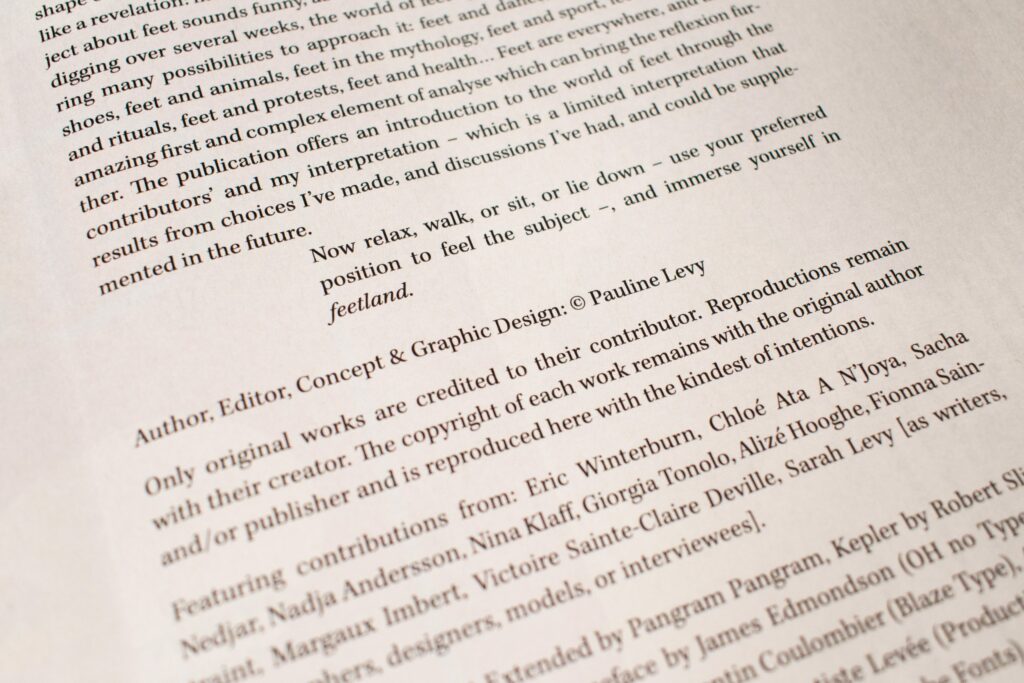 shape
like a revelation.
ject about feet sounds funny,
digging over several weeks, the world of
ring many possibilities to approach it: feet and
shoes, feet and animals, feet in the mythology, feet and sport,
and rituals, feet and protests, feet and health... Feet are everywhere, and
amazing first and complex element of analyse which can bring the reflexion fur-
ther. The publication offers an introduction to the world of feet through the
contributors' and my interpretation – which is a limited interpretation that
results from choices I've made, and discussions I've had, and could be supple-
mented in the future.
Now relax, walk, or sit, or lie down – use your preferred
position to feel the subject –, and immerse yourself in
feetland.
Author, Editor, Concept & Graphic Design: © Pauline Levy
Only original works are credited to their contributor. Reproductions remain
with their creator. The copyright of each work remains with the original author
and/or publisher and is reproduced here with the kindest of intentions.
Featuring contributions from: Eric Winterburn, Chloé Ata A N'Joya, Sacha
Nedjar, Nadja Andersson, Nina Klaff, Giorgia Tonolo, Alizé Hooghe, Fionna Sain-
raint, Margaux Imbert, Victoire Sainte-Claire Deville, Sarah Levy [as writers,
phers, designers, models, or interviewees].
Extended by Pangram Pangram, Kepler by Robert
face by James Edmondson (OH no Type
tin Coulombier (Blaze Type),
tiste Levée (Producti
Fonts)